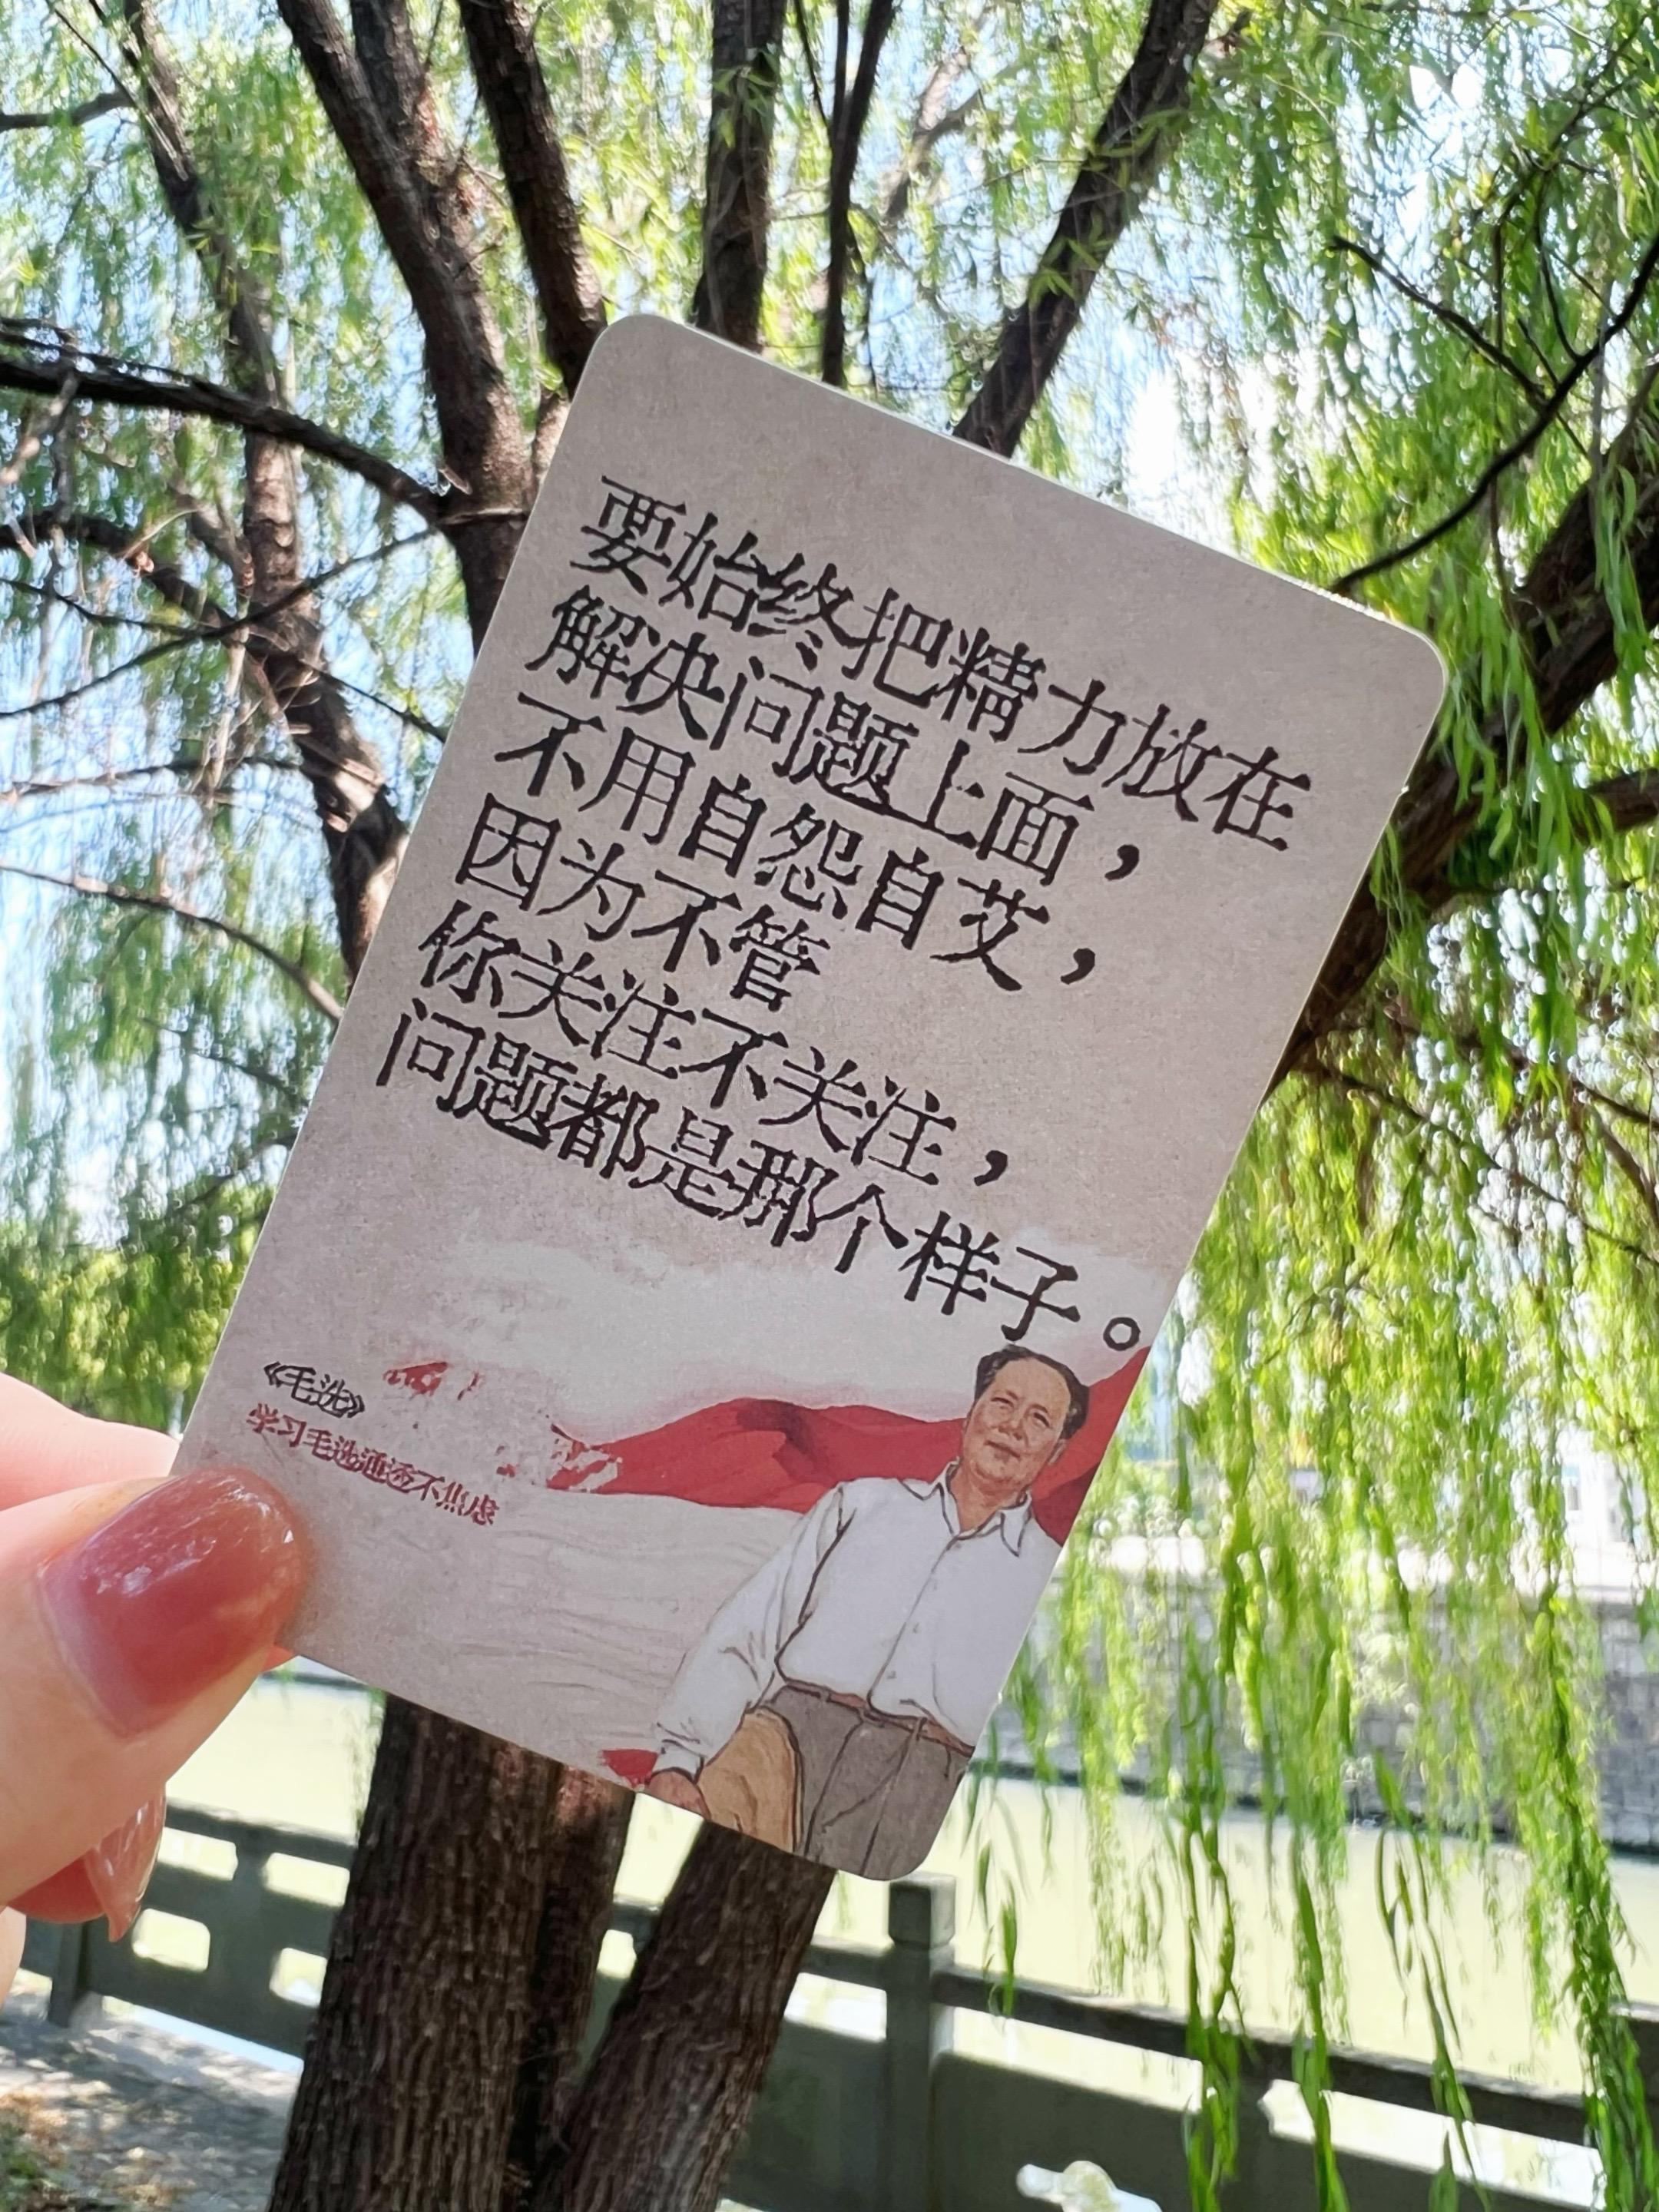 要始终把精力放在
解决问题上面，
不用自怨自艾，
因为不管
你关注不关注，
问题都是那个样子。
《毛选》
学习毛选通透不焦虑